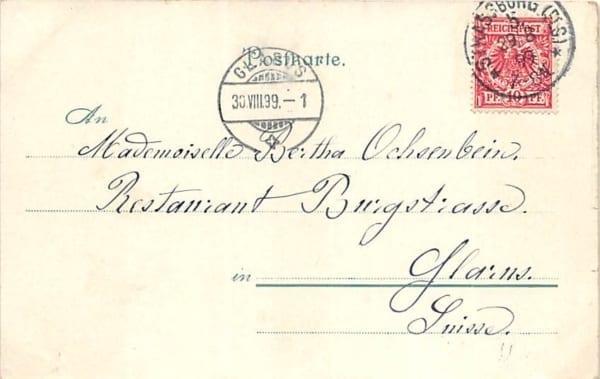 Postkarte.
REICHSPOST
STRASSBURG (ELS)
10
PFENNIG
GLARUS
30.VIII.99.–1
An
Mademoiselle Bertha Ochsenbein.
Restaurant Burgstrasse.
in Glarus.
Suisse.